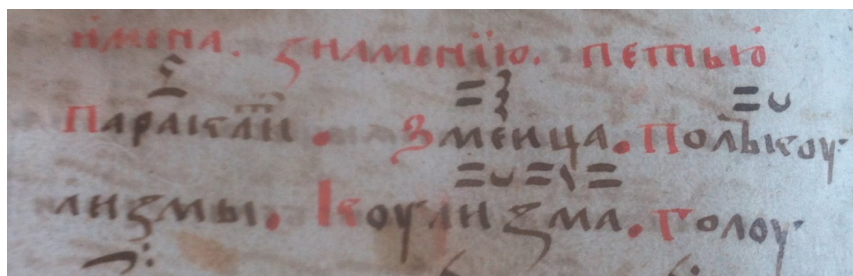 имена. знамениїю. петью
Параклит. Змеица. Полькоу
лизмы. Коулизма. Голоу